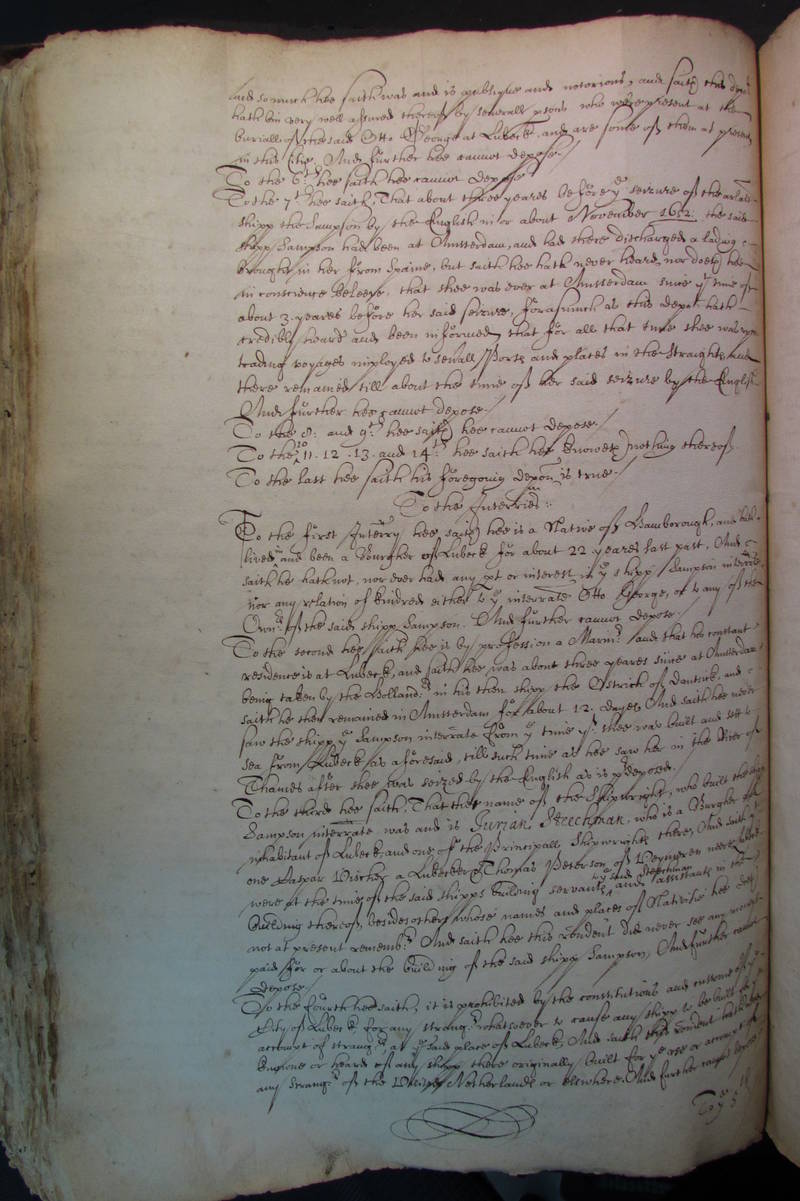 and so much hee saith was and is publique and notorious, and saith this dep.t
hath bin very well assured thereof by severall psons who were present at the
buriall of the said Otto George at Lubeck, and are some of them at present
in this City. And further hee cannot depose./
To the 6:th hee saith hee cannot depose
To the 7:th hee saith, That about three yeares before ye seizure of the arlate
shipp the Sampson by the English in or about November 1652. the said
shipp Sampson had been at Amsterdam, and had there discharged a lading
brought in her from Spaine, but saith hee hath never heard, nor doeth hee
in conscience beleeve, that shee was ever at Amsterdam since ye time of
about 3. yeares before her said seizure, forasmuch as this dept hath
credibly heard and been informed, that for all that time shee was upon
trading voyages imployed to sevall Ports and places in the Straights, and
there remained till about the time of her said seizure by the English
And further hee cannot depose./
To the 8: and 9:th hee saith hee cannot depose./
To the 10 11. 12. 13. and 14:th hee saith hee knoweth nothing thereof
To the last hee saith his foregoing deposn is true./
To the Interries:
To the first Interry hee saith hee is a Native of Hamborough, and hath
lived and been a Bourgher of Lubeck for about 22 yeares last past, And
saith he hath not, nor ever had any pt or interest in ye shipp Sampson interrate,
nor any relation of kindred either to ye interrate Otto George, or to any of the
Ownrs of the said shipp Sampson. And further cannot depose./
To the second hee saith hee is by profession a Marinr and that his constant
residence is at Lubeck, and saith hee was about three yeares since at Amsterdam
being taken by the Hollandrs in his then shipp the Ostrich of Dantsick, and
saith he then remained in Amsterdam for about 12. dayes And saith hee never
saw the shipp ye Sampson interrate from ye time yt shee was built and sett to
sea from Lubeck as aforesaid, till such time as hee saw her in the River of
Thames after shee was seized by the English as is predeposed./
To the third hee saith, That the name of the Shipwright, who built the shipp
Sampson interrate was and is Jurian Steechman, who is a Burgher and
inhabitant of Lubeck, and one of the Principall Shipwrights there, And saith yt
one Caspar Vischer a Lubecker, Thomas Peterson of neere Lubeck
were at the time of the said shipps building servants to ye said Steechman and assistants in the
building thereof, besides others whose names and places of Nativitie hee doth
not at present remembr And saith hee this rendent did never see any money
paid for or about the building of the said shipp Sampson, And further cannot
depose
To the fourth hee saith, it is prohibited by the constitutions and customes of ye
City of Lubeck for any strangr whatsoever to cause any shipp to be built for ye
accompt of strangrs at ye said place of Lubeck, And saith this rendent hath not
knowne or heard of any shipp there originally built for ye use or accompt of
any strangr of the United Netherlands or elsewhere. And further cannot depose
To ye 5th